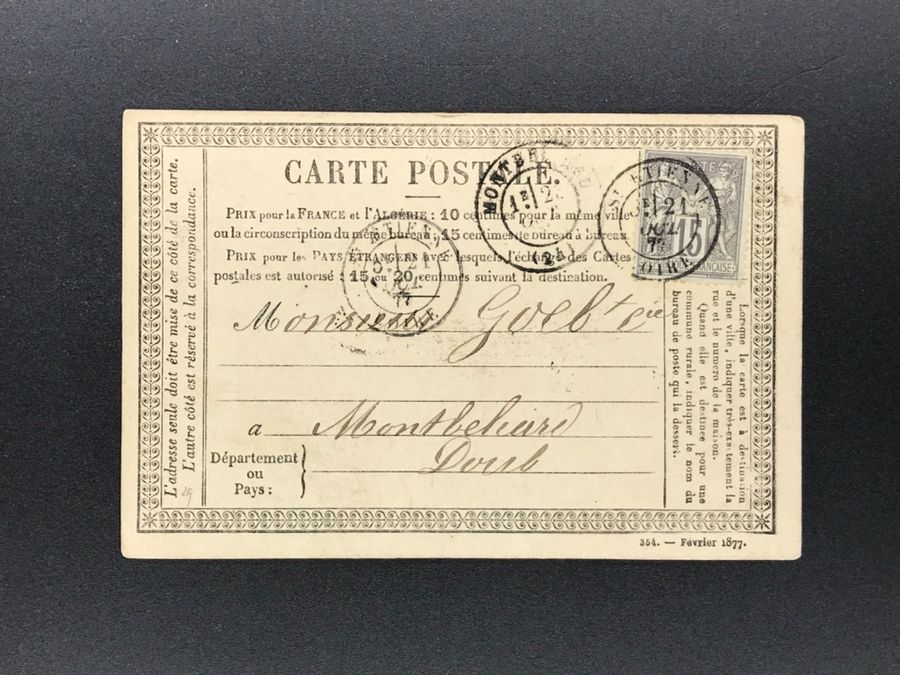 CARTE POSTALE
PRIX pour la FRANCE et l'ALGÉRIE : 10 centimes pour la même ville
ou la circonscription du même bureau ; 15 centimes de bureau à bureau.
PRIX pour les PAYS ÉTRANGERS avec lesquels l'échange des Cartes
postales est autorisé : 15 ou 20 centimes suivant la destination.
Monsieur Goeb
a Montbeliard
Doub
Département
ou
Pays :
L'adresse seule doit être mise de ce côté de la carte.
L'autre côté est réservé à la correspondance.
Lorsque la carte est à destination
d'une ville, indiquer très-exactement la
rue et le numero de la maison.
Quand elle est destinée pour une
commune rurale, indiquer le nom du
bureau de poste qui la dessert.
354. — Février 1877.
ST ETIENNE
21
77
LOIRE
15
(24)
29